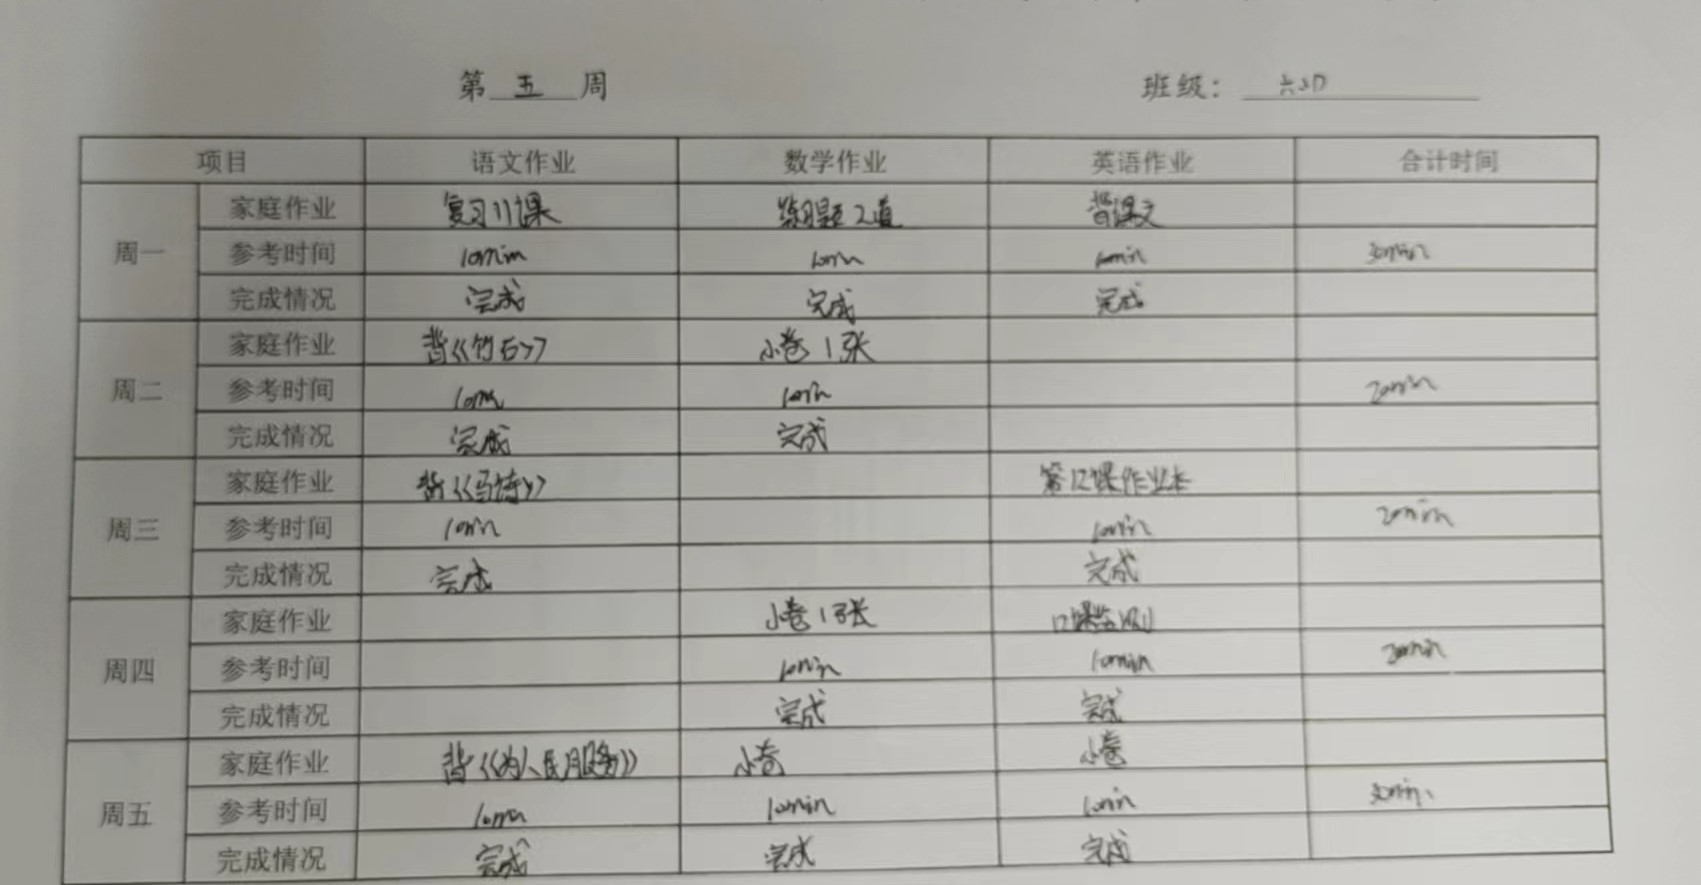 第 五 周 班级：
项目 语文作业 数学作业 英语作业 合计时间
周一 家庭作业 复习11课 练习题2道 背课文
参考时间 10min 10min 10min 30min
完成情况 完成 完成 完成
周二 家庭作业 背《竹石》 小卷1张
参考时间 10min 10min 20min
完成情况 完成 完成
周三 家庭作业 背《马诗》 第12课作业本
参考时间 10min 10min 20min
完成情况 完成 完成
周四 家庭作业 小卷1张 12课监测
参考时间 10min 10min 20min
完成情况 完成 完成
周五 家庭作业 背《为人民服务》 小卷 小卷
参考时间 10min 10min 10min 30min
完成情况 完成 完成 完成